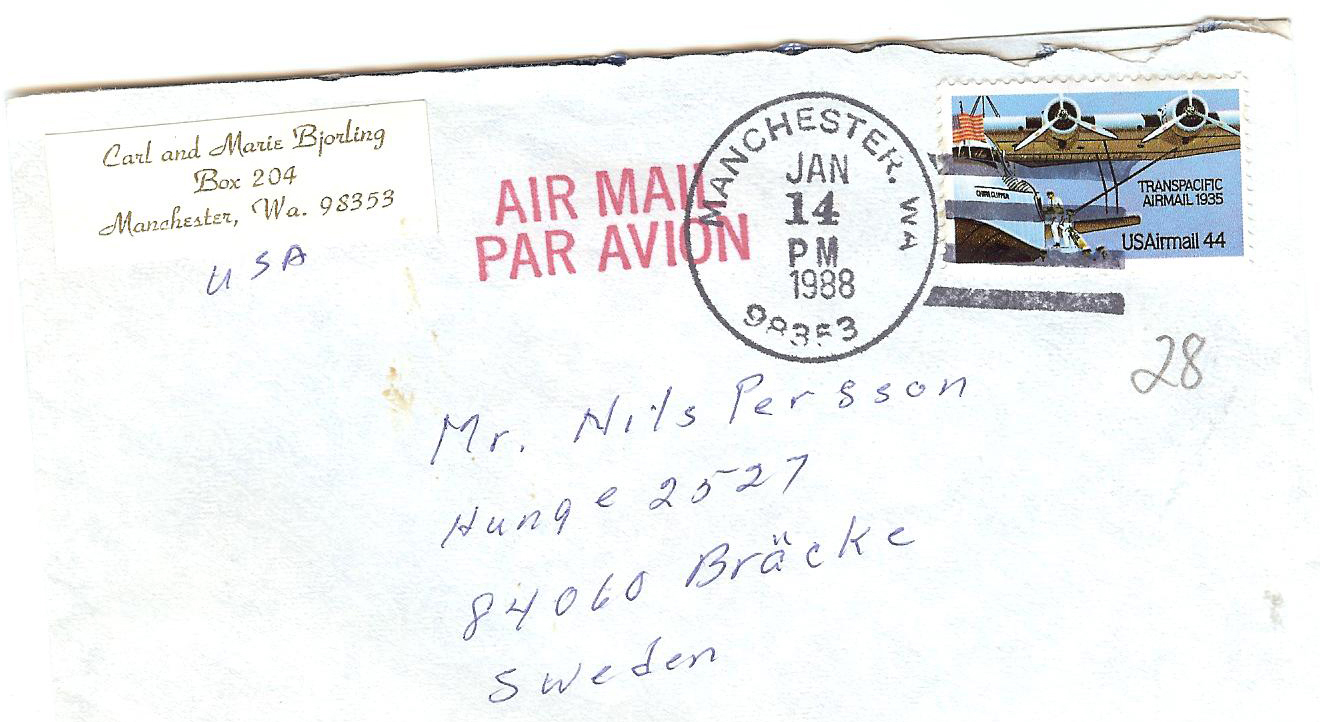 Carl and Marie Bjorling
Box 204
Manchester, Wa. 98353
USA
AIR MAIL
PAR AVION
MANCHESTER. WA
JAN
14
PM
1988
98353
CHINA CLIPPER
TRANSPACIFIC
AIRMAIL 1935
USAirmail 44
28
Mr. Nils Persson
Hunge 2527
84060 Bräcke
Sweden